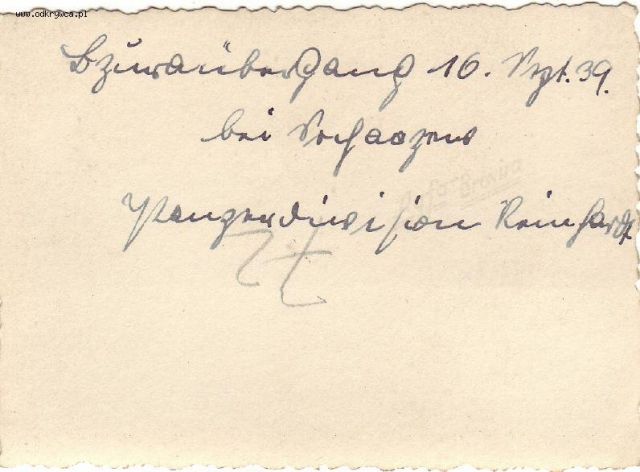 www.odkrywca.pl
Bzuraübergang 16. Sept. 39.
bei Sochaczew
Panzerdivision Reinhardt